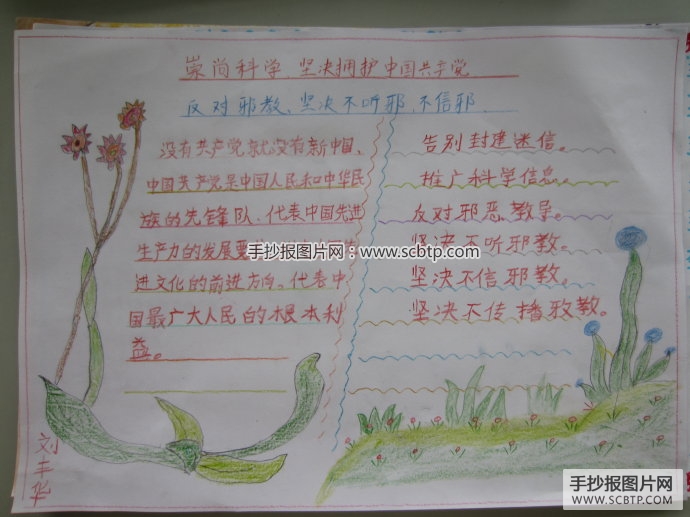 崇尚科学、坚决拥护中国共产党
反对邪教、坚决不听邪,不信邪
没有共产党就没有新中国、
中国共产党是中国人民和中华民
族的先锋队、代表中国先进
生产力的发展要
进文化的前进方向。代表中
国最广大人民的根本利
益。
告别封建迷信。
推广科学信息。
反对邪恶教导。
坚决不听邪教。
坚决不信邪教。
坚决不传播邪教。
手抄报图片网 www.scbtp.com
刘丰华
手抄报图片网
WWW.SCBTP.COM